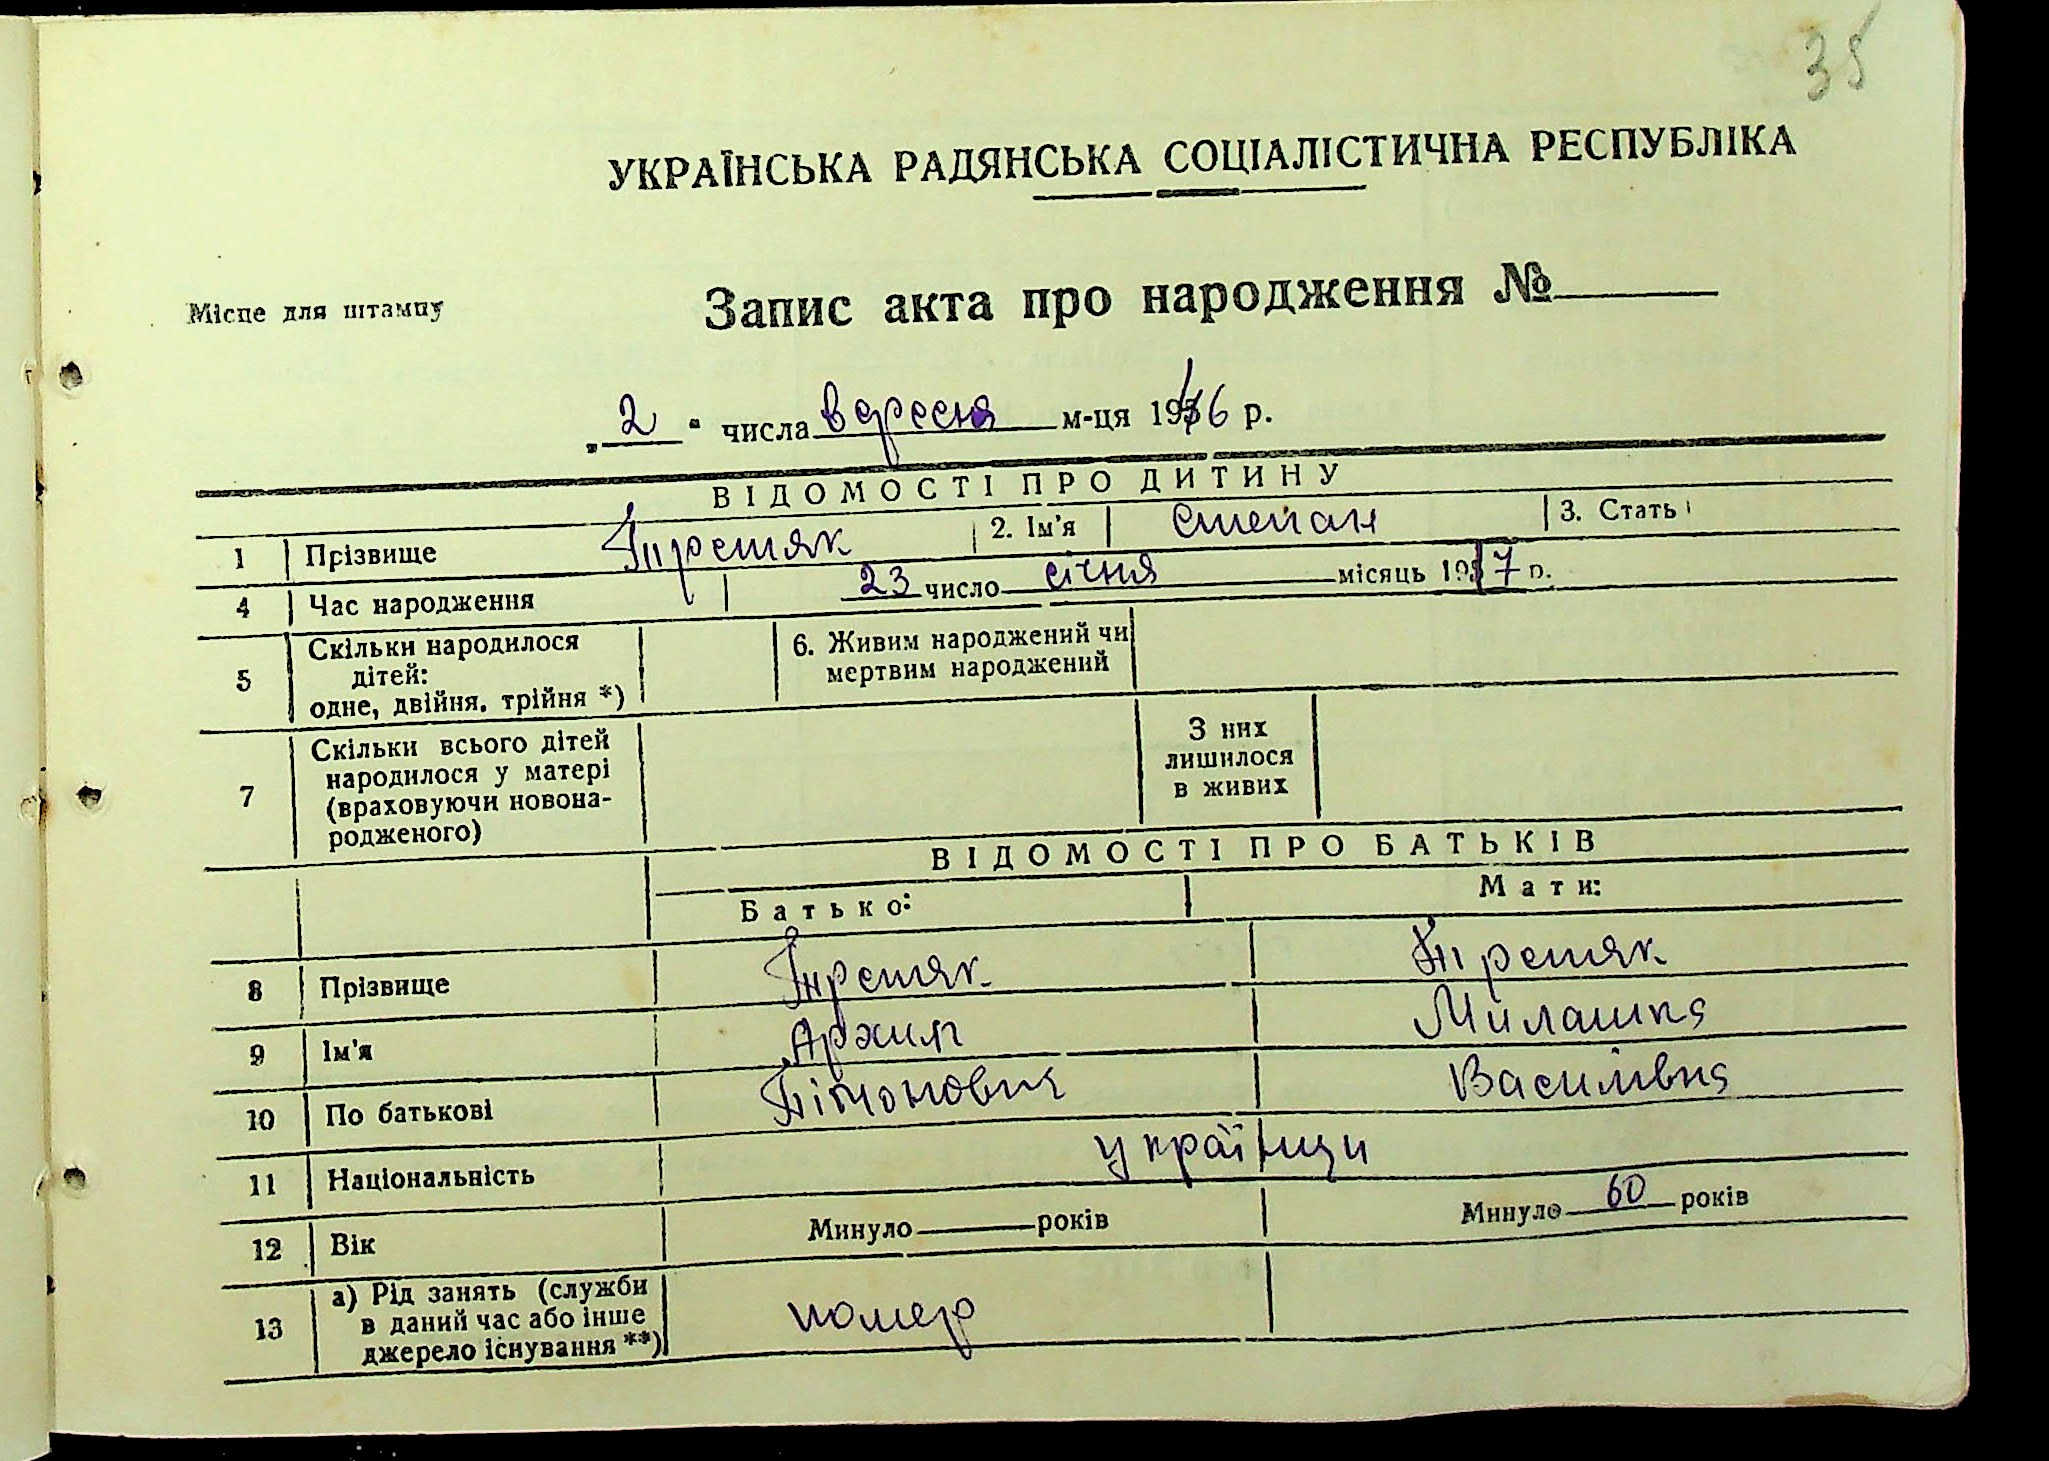 35
УКРАЇНСЬКА РАДЯНСЬКА СОЦІАЛІСТИЧНА РЕСПУБЛІКА
Місце для штампу
Запис акта про народження №
„ 2 " числа вересня м-ця 1946 р.
ВІДОМОСТІ ПРО ДИТИНУ
1 Прізвище Третяк 2. Ім'я Степан 3. Стать
4 Час народження 23 число січня місяць 1917 р.
5 Скільки народилося дітей: одне, двійня, трійня *) 6. Живим народжений чи мертвим народжений
7 Скільки всього дітей народилося у матері (враховуючи новона-родженого) З них лишилося в живих
ВІДОМОСТІ ПРО БАТЬКІВ
Батько: Мати:
8 Прізвище Третяк Третяк
9 Ім'я Архип Милашка
10 По батькові Тімонович Василівна
11 Національність українци
12 Вік Минуло років Минуло 60 років
13 а) Рід занять (служби в даний час або інше джерело існування **) помер